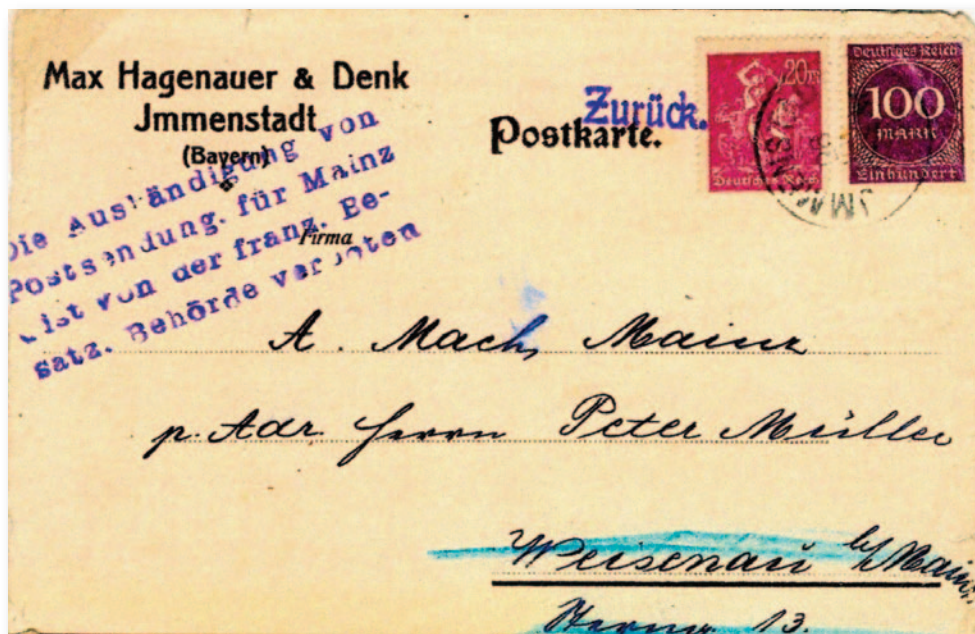 Max Hagenauer & Denk
Jmmenstadt
(Bayern)
Zurück.
Postkarte.
20
Deutsches Reich
Deutsches Reich
100
MARK
Einhundert
Die Aushändigung von
Postsendung. für Mainz
ist von der franz. Be-
satz. Behörde verboten
Firma
A. Mach, Mainz
p. Adr. Herrn Peter Müller
Weisenau b/Mainz
13.